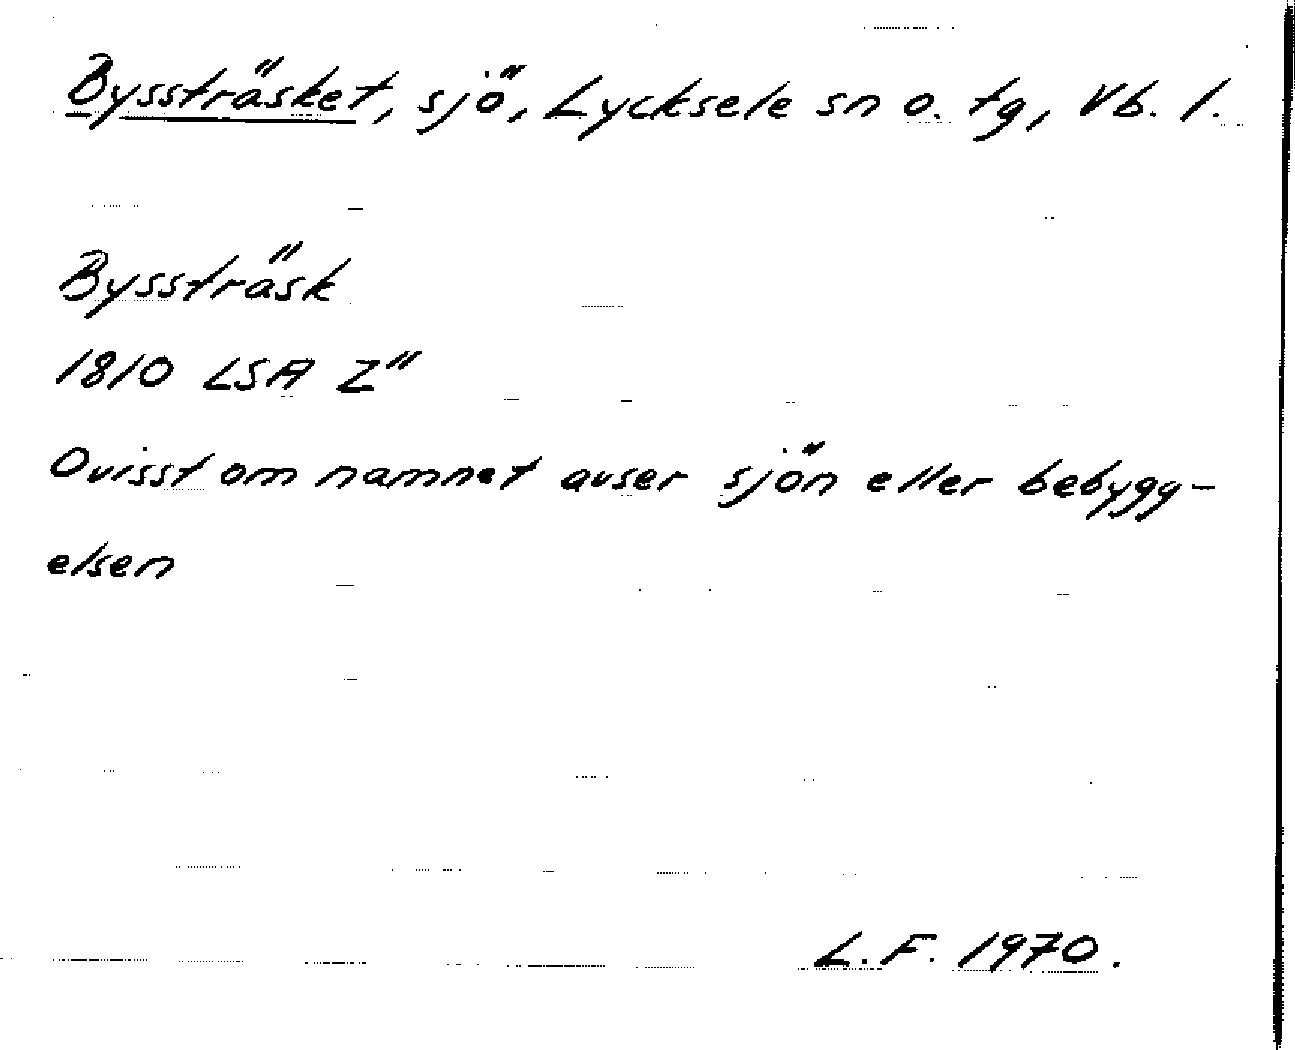 Byssträsket, sjö, Lycksele sn o. tg, Vb. l.
Byssträsk
1810 LSA Z"
Ovisst om namnet avser sjön eller bebygg-
elsen
L.F. 1970.